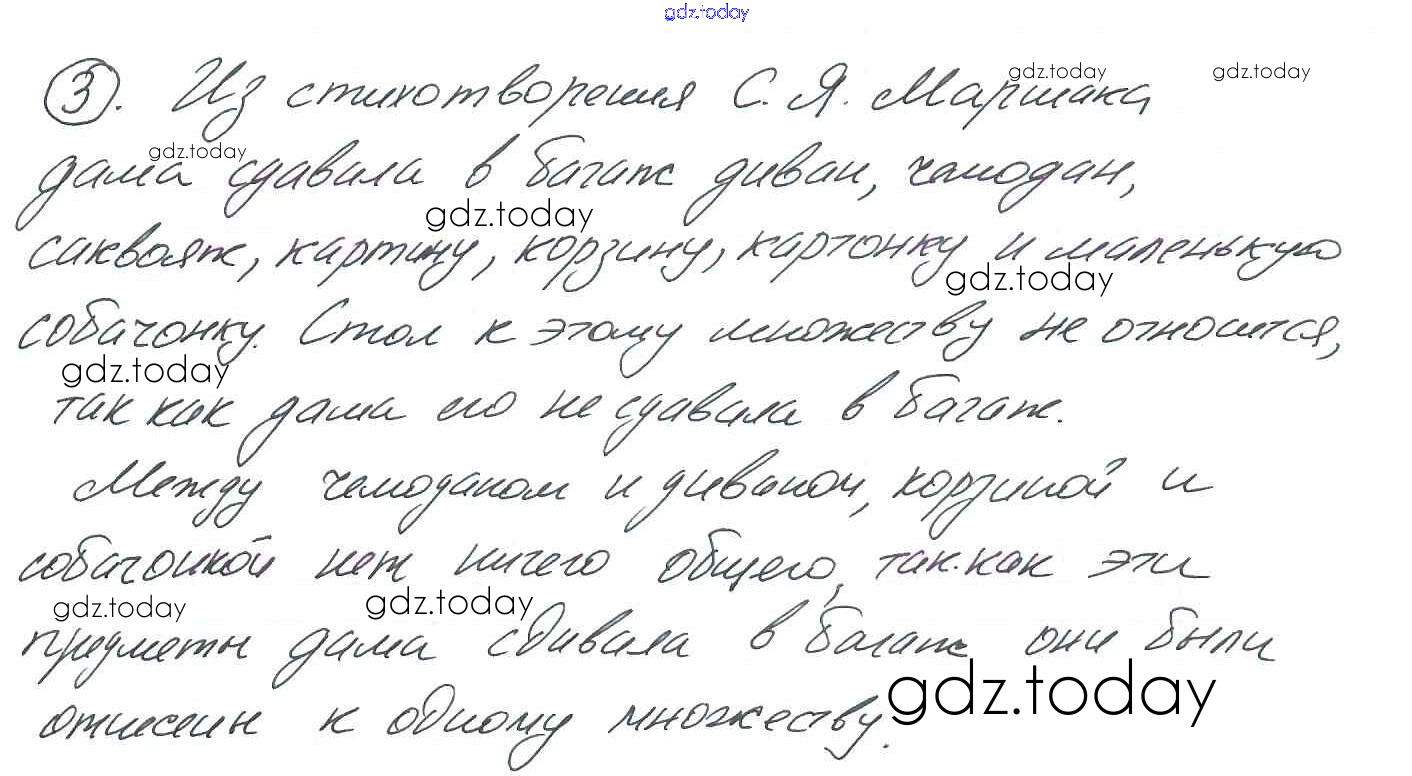 gdz.today
3. Из стихотворения С. Я. Маршака gdz.today gdz.today
gdz.today
дама сдавала в багаж диван, чемодан,
gdz.today
саквояж, картину, корзину, картонку и маленькую
gdz.today
собачонку. Стол к этому множеству не относится,
gdz.today
так как дама его не сдавала в багаж.
Между чемоданом и диваном, корзиной и
собачонкой нет ничего общего, так как эти
gdz.today gdz.today
предметы дама сдавала в багаж они были
gdz.today
отнесены к одному множеству.